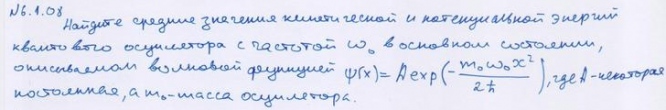 №6.1.08
Найдите средние значения кинетической и потенциальной энергий
квантового осциллятора с частотой ω₀ в основном состоянии,
описываемом волновой функцией ψ(x) = A exp(-m₀ω₀x²/2ħ), где A-некоторая
постоянная, а m₀-масса осциллятора.